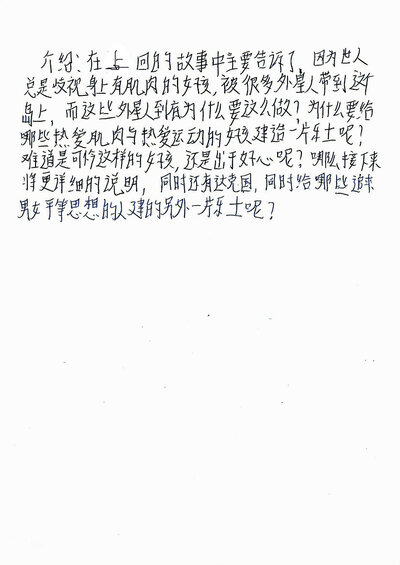 介绍：在上回的故事中主要告诉了，因为世人
总是歧视身上有肌肉的女孩，被很多外星人带到这个
岛上，而这些外星人到有为什么要这么做？为什么要给
哪些热爱肌肉与热爱运动的女孩建造一片乐土呢？
难道是可怜这样的女孩，还是出于好心呢？哪么接下来
将更详细的说明，同时还有达克国，同时给哪些追求
男女平等思想的人建的另外一片乐土呢？